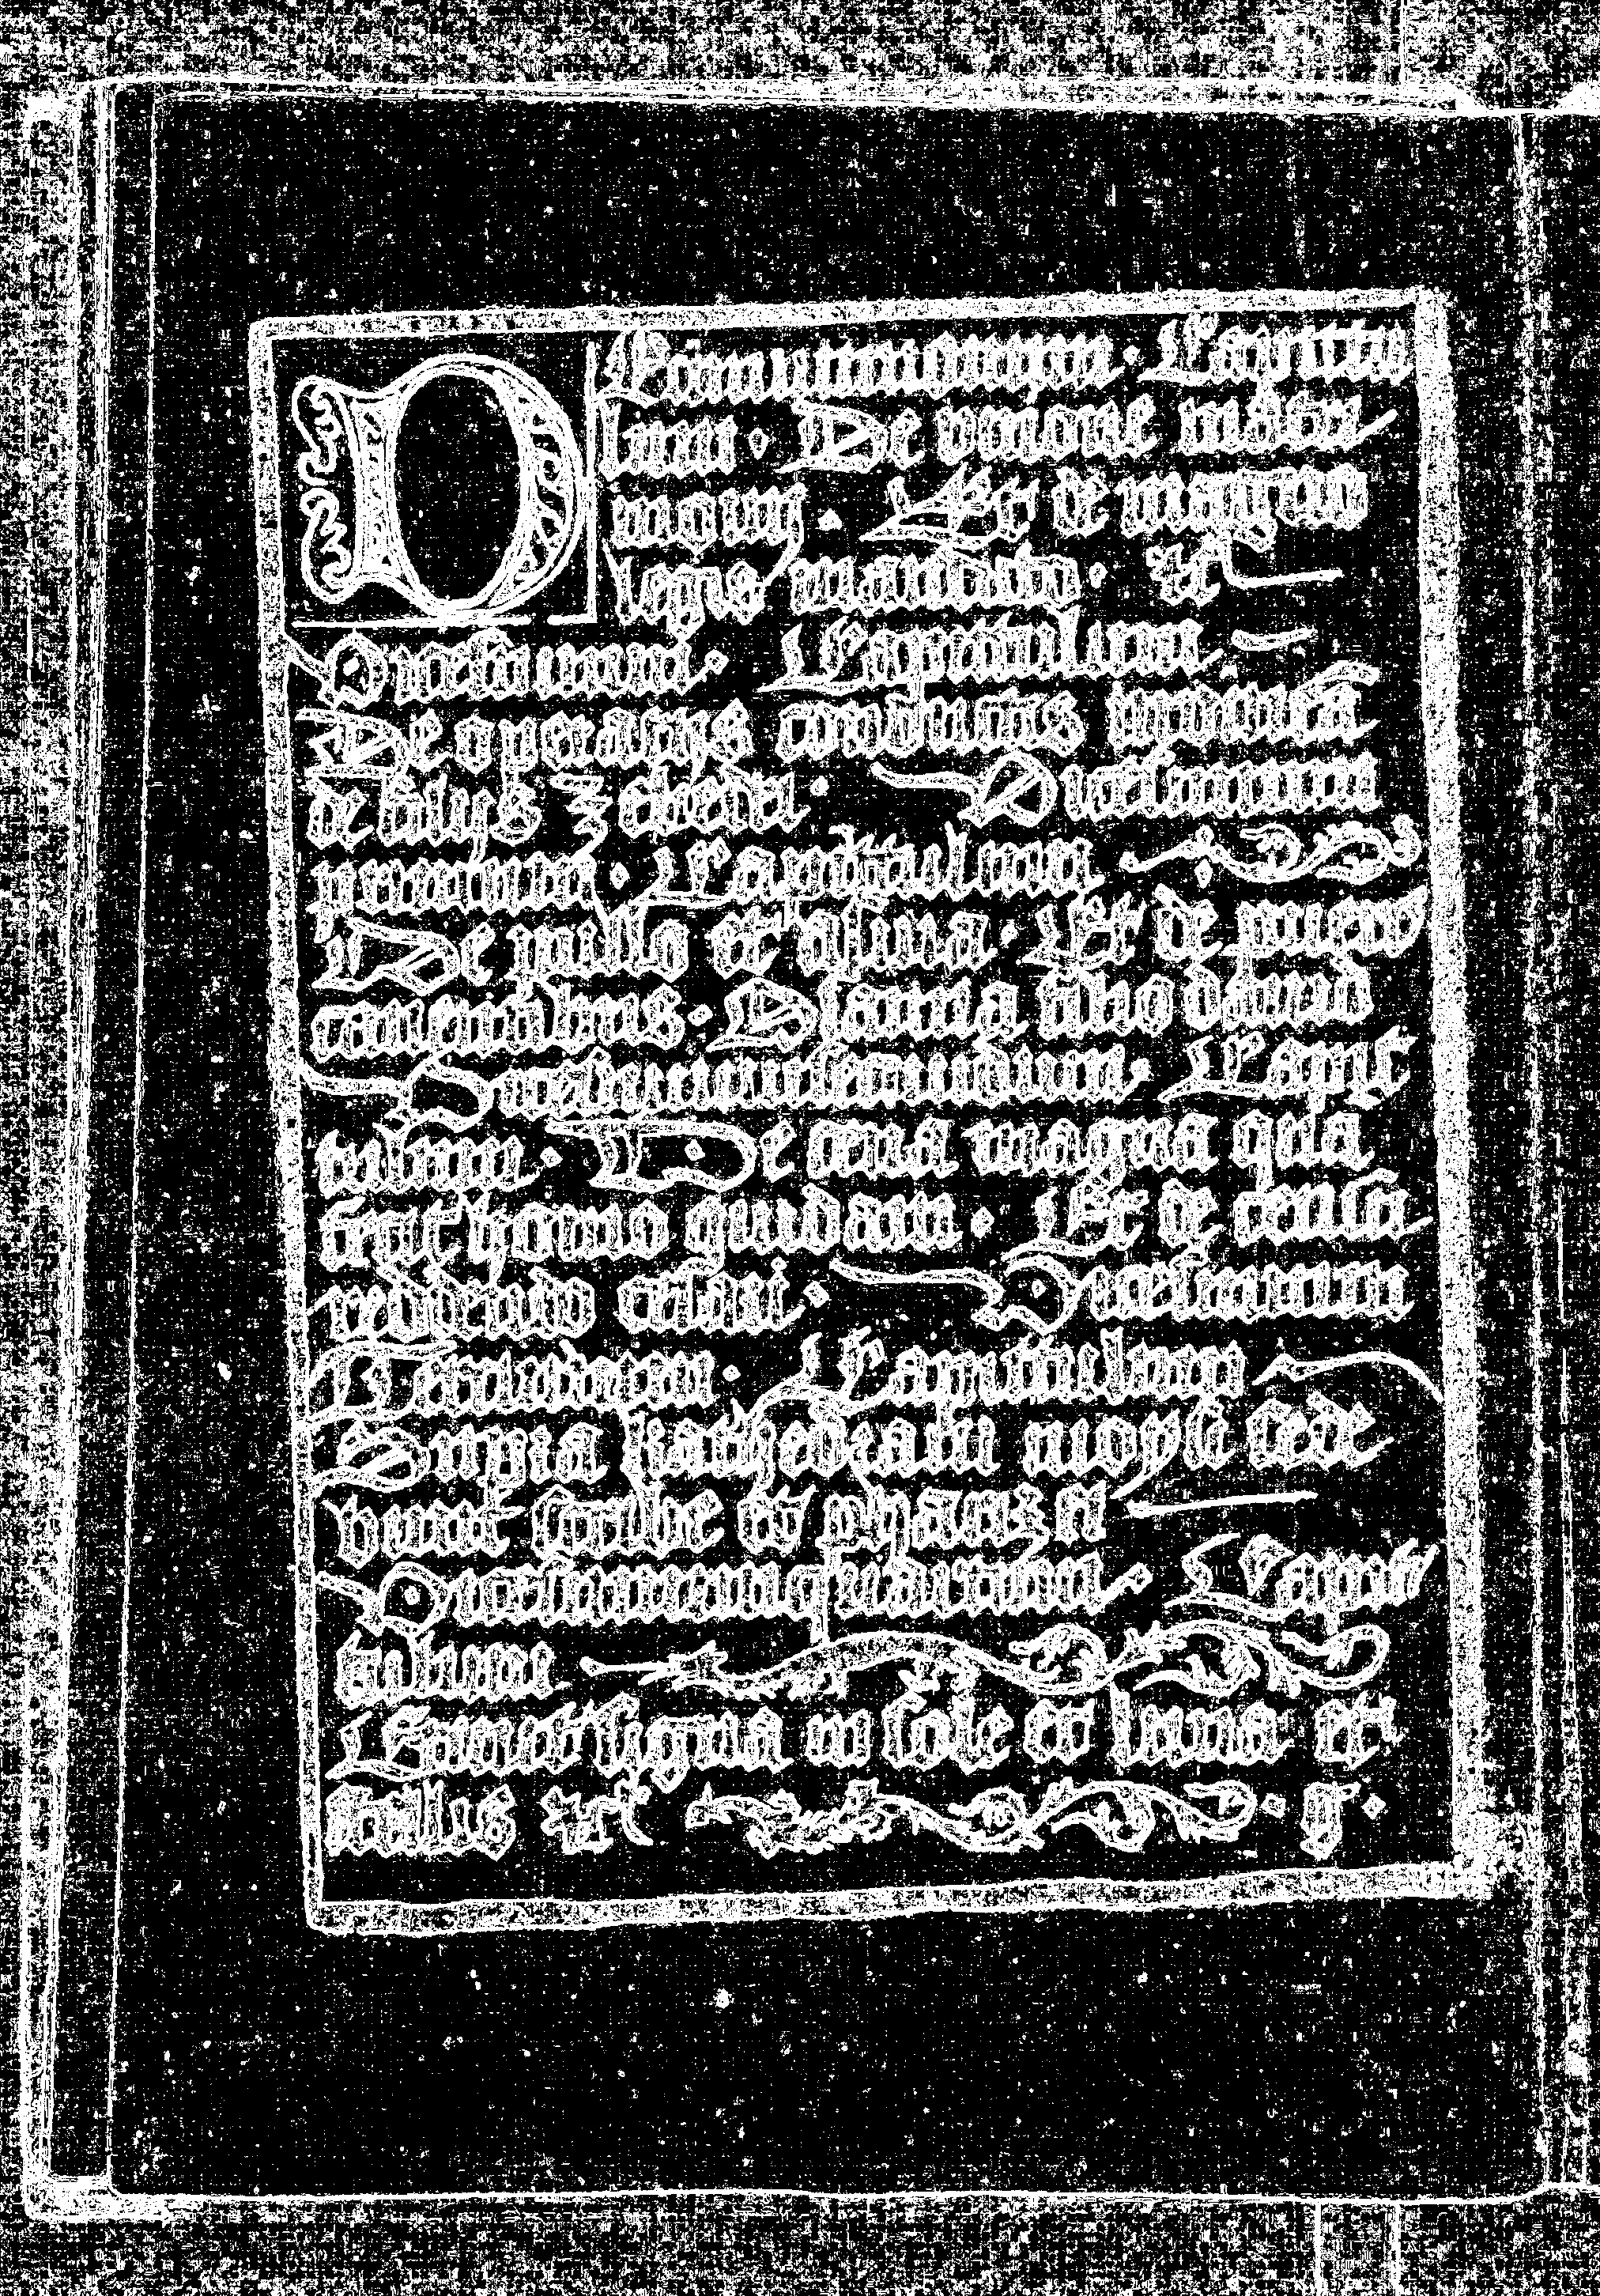 Decimumnonum. Capitu
lum. De vnione matri
monij. Et de magno
legis mandato. 
Vicesimum. Capittulum
De operarijs conductis
de filijs Zebedei. Vicesimum
primum. Capittulum
De pullo et asina. Et de puero
canentibus. Osanna filio dauid
Vicesimumsecundum. Capit
tulum. De cena magna quam
fecit homo quidam. Et de censu
reddendo cesari. Vicesimum
Tercium. Capittulum
Supra kathedram moysi sede
runt scribe et pharizei
Vicesimumquartum. Capit
tulum
Erunt signa in sole et luna et
stellis